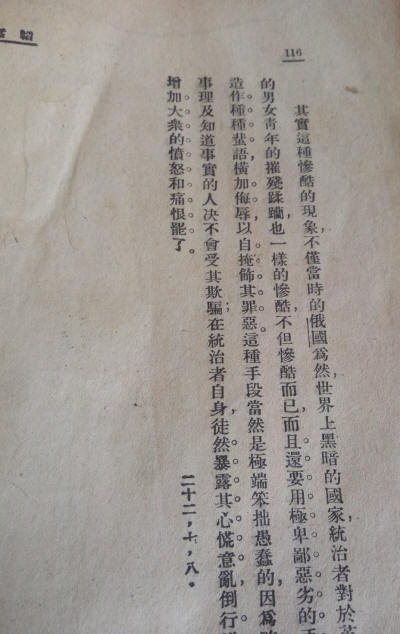 116
其實這種慘酷的現象，不僅當時的俄國爲然，世界上黑暗的國家，統治者對於
的男女青年的摧殘蹂躪，也一樣的慘酷，不但慘酷而已，而且還要用極卑鄙惡劣的
造作種種蜚語，橫加侮辱，以自掩飾其罪惡。這種手段當然是極端笨拙愚蠢的，因爲
事理及知道事實的人决不會受其欺騙；在統治者自身，徒然暴露其心慌意亂，倒行
增加大衆的憤怒和痛恨罷了。
二十二，七，八。